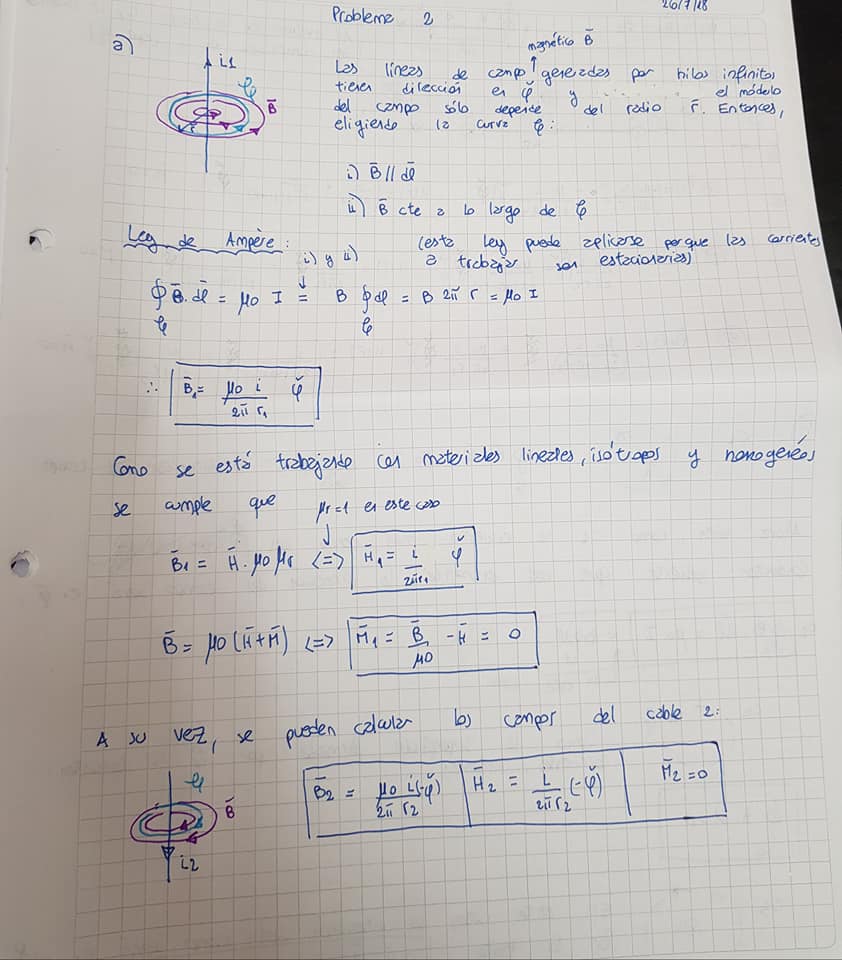 26/7/18
Problema 2
a)
i1
φ
B̄
r
magnético B̄
Las líneas de campo ↑ generadas por hilos infinitos
tienen dirección en φ̆ y el módulo
del campo sólo depende del radio r̄. Entonces,
eligiendo la curva φ:
i) B̄ // dl̄
ii) B̄ cte a lo largo de φ
Ley de Ampère: (esta ley puede aplicarse porque las corrientes
i) y ii) a trabajar son estacionarias)
∮φ B̄.dl̄ = μ0 I = B ∮φ dl = B 2π r = μ0 I
∴ B̄1 = μ0 i / 2π r1 φ̆
Como se está trabajando con materiales lineales, isótropos y homogéneos
se cumple que μr=1 en este caso
B̄1 = H̄ . μ0 μr <=> H̄1 = i / 2π r1 φ̆
B̄ = μ0 (H̄+M̄) <=> M̄1 = B̄ / μ0 - H̄ = 0
A su vez, se pueden calcular los campos del cable 2:
φ
B̄
i2
B̄2 = μ0 i / 2π r2 (-φ̆) H̄2 = i / 2π r2 (-φ̆) M̄2 = 0